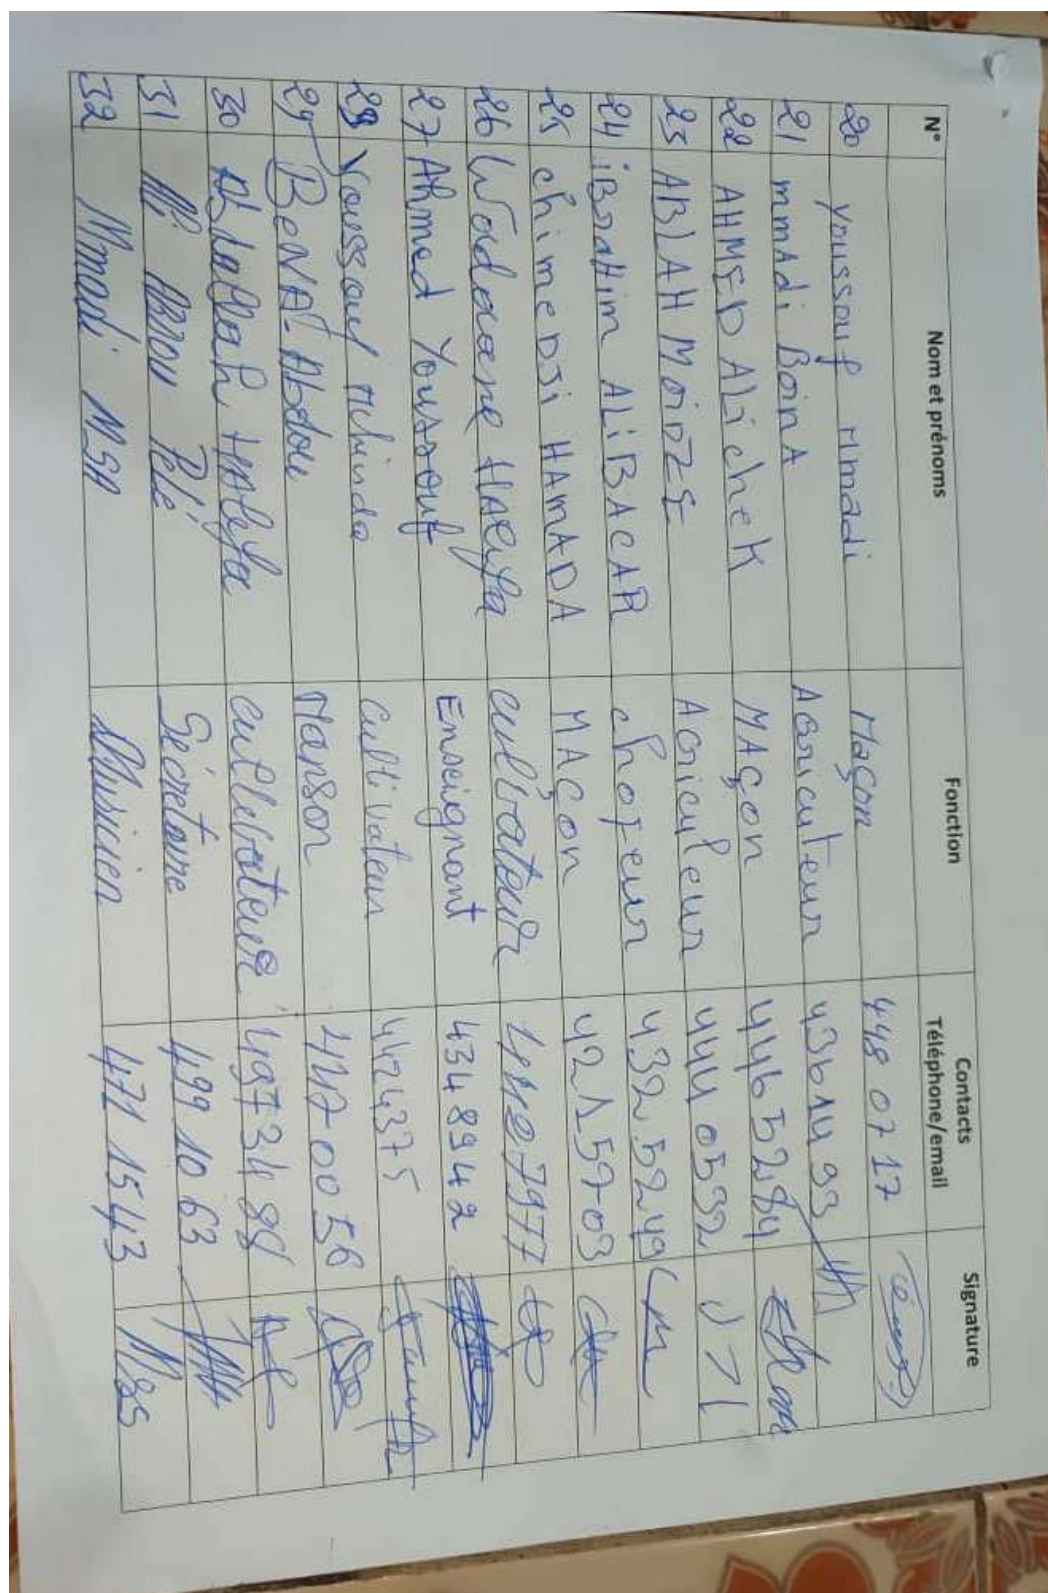 N° Nom et prénoms Fonction Contacts Téléphone/email Signature
20 Youssouf Mmadi Maçon 448 07 17
21 mmAdi BoinA Agriculteur 4361493
22 AHMED ALicheK MAçon 4465284
23 ABLAH MoiNZE Agriculeur 4440532
24 iBraHim ALiBACAR chofeur 4325249
25 chimeDJi HAmADA MAçon 4215703
26 Waddaane HAlifa culvateur 7977
27 Ahmed Youssouf Enseignant 4348942
28 Youssouf Mhinda Cultivateur 4424375
29 BeNA Abdou Manson 4470056
30 Abdallah HAlifa 4973488
31 Ali Abdou Pelé Sécretaire 499 10 63
32 Mmadi MSA Musicien 471 15 43